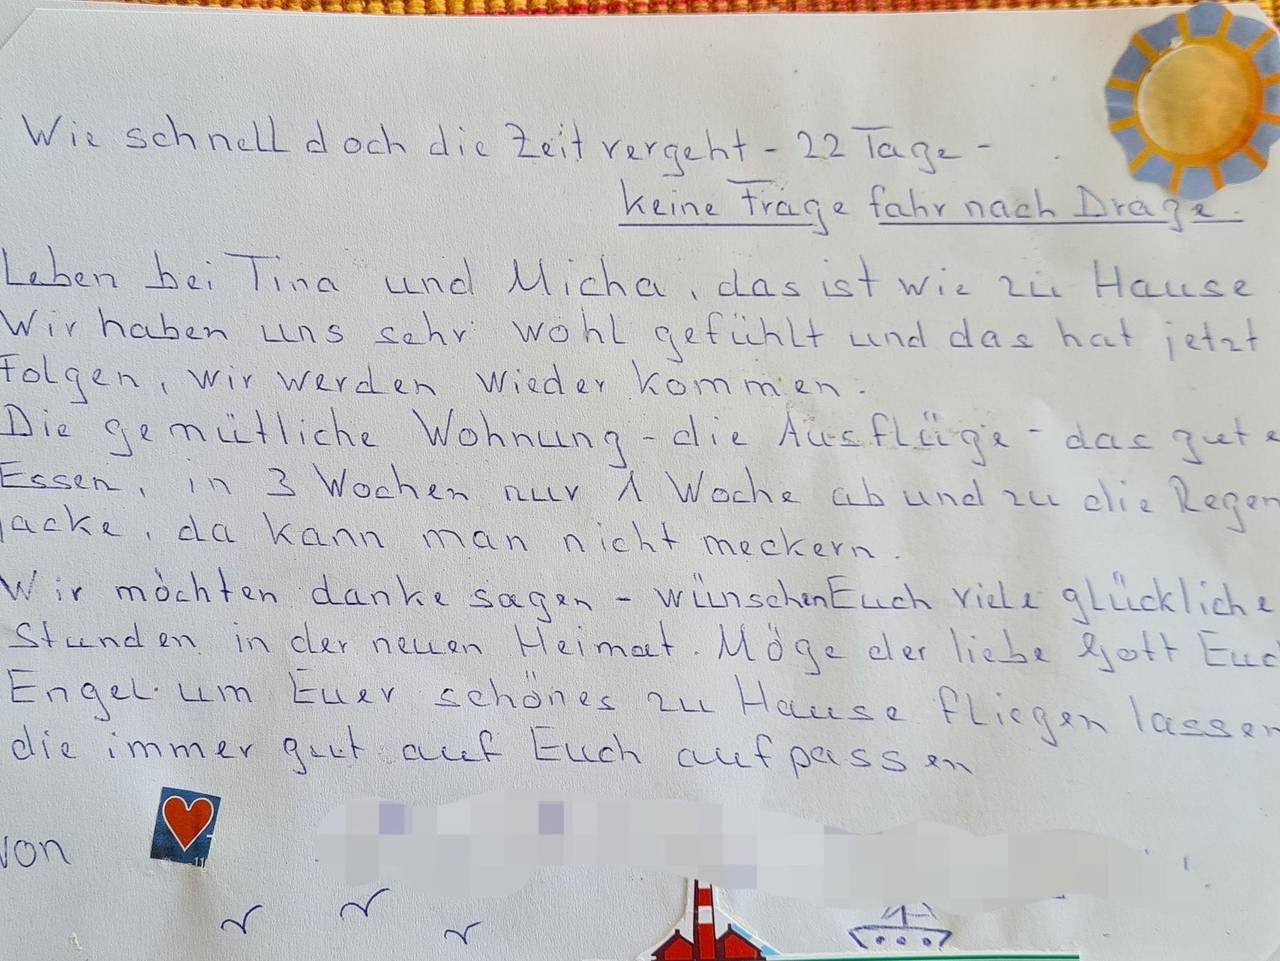 Wie schnell doch die Zeit vergeht - 22 Tage -
keine Frage fahr nach Drage.
Leben bei Tina und Micha, das ist wie zu Hause
Wir haben uns sehr wohl gefühlt und das hat jetzt
Folgen, wir werden wieder kommen.
Die gemütliche Wohnung - die Ausflüge - das gute
Essen, in 3 Wochen nur 1 Woche ab und zu die Regen
jacke, da kann man nicht meckern.
Wir möchten danke sagen - wünschen Euch viele glückliche
Stunden in der neuen Heimat. Möge der liebe Gott Euch
Engel um Euer schönes zu Hause fliegen lassen
die immer gut auf Euch aufpassen
von
11